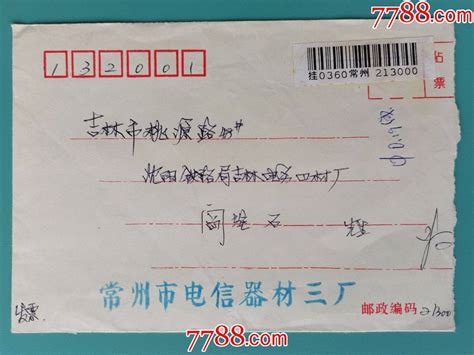 7788.com
挂0360常州 213000
132001
贴
票
吉林市桃源路
沈阳铁路局吉林电务器材厂
阎
石
辉
常州市电信器材三厂
发票
邮政编码
7788.com